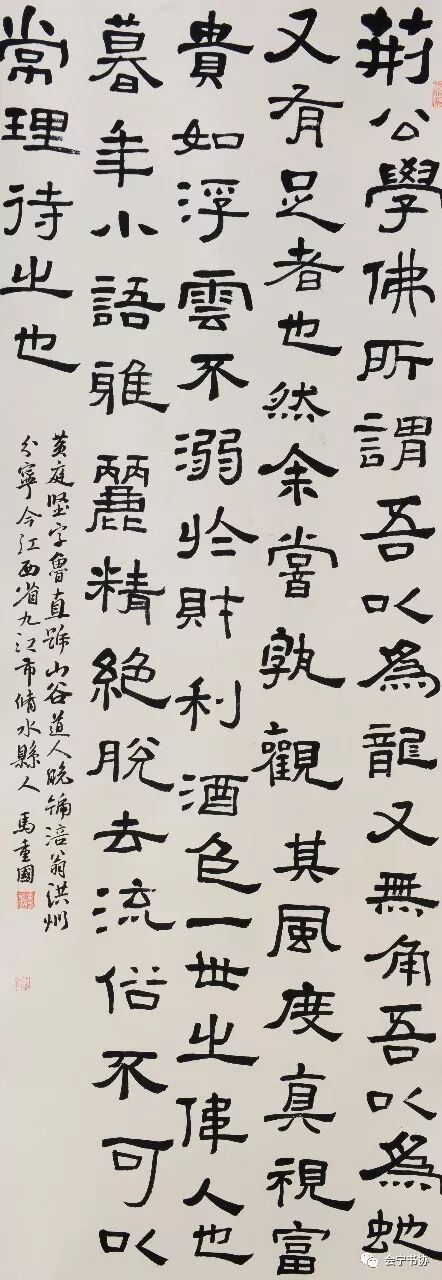 荆公學佛所謂吾以為龍又無角吾以為虵
又有足者也然余嘗孰觀其風度真視富
貴如浮雲不溺於財利酒色一世之偉人也
暮年小語雅麗精絕脫去流俗不可以
常理待之也
黃庭坚字魯直號山谷道人晚號涪翁洪州
分寧今江西省九江市修水縣人 馬重國
会宁书协